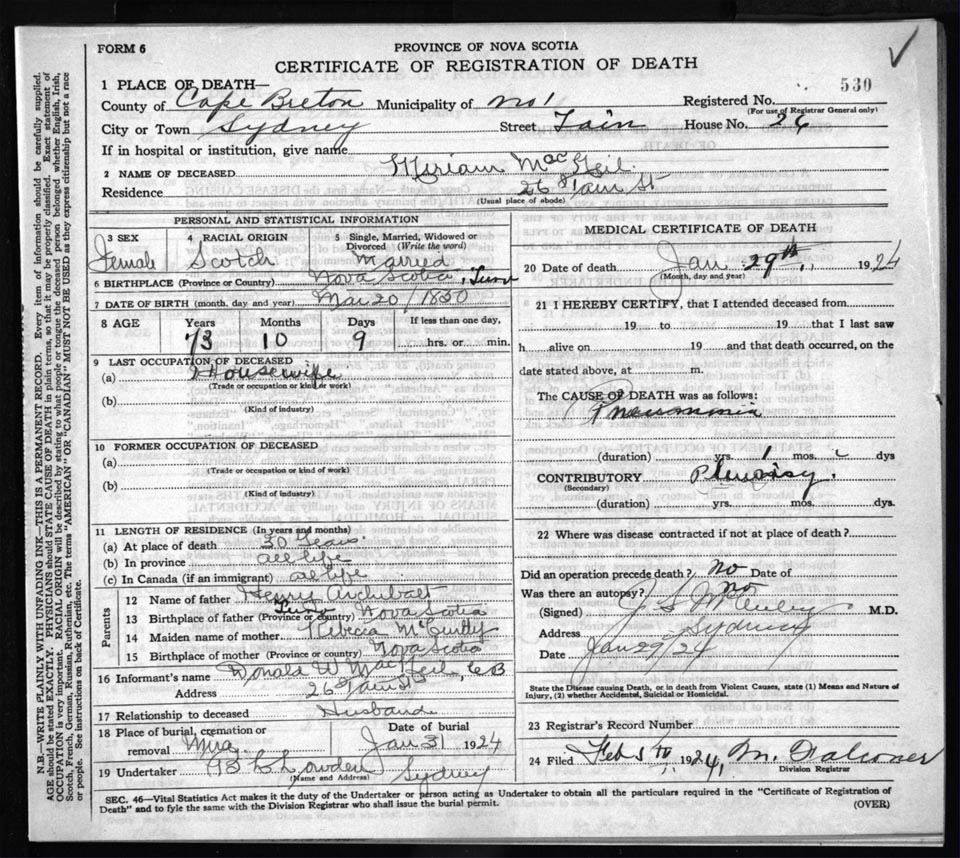 FORM 6
PROVINCE OF NOVA SCOTIA
CERTIFICATE OF REGISTRATION OF DEATH
530
1 PLACE OF DEATH—
County of Cape Breton Municipality of No 1 Registered No.
(For use of Registrar General only)
City or Town Sydney Street Tain House No. 26
If in hospital or institution, give name
2 NAME OF DECEASED Miriam MacNeil
Residence 26 Tain St
(Usual place of abode)
PERSONAL AND STATISTICAL INFORMATION
3 SEX Female
4 RACIAL ORIGIN Scotch
5 Single, Married, Widowed or Divorced (Write the word) Married
6 BIRTHPLACE (Province or Country) Nova Scotia, Truro
7 DATE OF BIRTH (month, day and year) Mar 20/1850
8 AGE Years 73 Months 10 Days 9 If less than one day, hrs. or min.
9 LAST OCCUPATION OF DECEASED
(a) Housewife
(Trade or occupation or kind of work)
(b)
(Kind of industry)
10 FORMER OCCUPATION OF DECEASED
(a)
(Trade or occupation or kind of work)
(b)
(Kind of industry)
11 LENGTH OF RESIDENCE (In years and months)
(a) At place of death 30 Years
(b) In province all life
(c) In Canada (if an immigrant) all life
Parents
12 Name of father Henry Archibald
13 Birthplace of father (Province or country) Truro Nova Scotia
14 Maiden name of mother Rebecca
15 Birthplace of mother (Province or country) Nova Scotia
16 Informant's name Donald W MacNeil, C B
Address 26 Tain St
17 Relationship to deceased Husband
18 Place of burial, cremation or removal Mira Date of burial Jan 31 1924
19 Undertaker Sydney
(Name and Address)
MEDICAL CERTIFICATE OF DEATH
20 Date of death Jan 29th, 1924
(Month, day and year)
21 I HEREBY CERTIFY, that I attended deceased from
19 to 19 that I last saw
h alive on 19 and that death occurred, on the
date stated above, at m.
The CAUSE OF DEATH was as follows:
Pneumonia
(duration) yrs. 1 mos. dys
CONTRIBUTORY Pleurisy.
(Secondary)
(duration) yrs. mos. dys.
22 Where was disease contracted if not at place of death?
Did an operation precede death? no Date of
Was there an autopsy? no
(Signed) M.D.
Address Sydney
Date Jan 29/24
State the Disease causing Death, or in death from Violent Causes, state (1) Means and Nature of Injury, (2) whether Accidental, Suicidal or Homicidal.
23 Registrar's Record Number
24 Filed Feb 5th, 1924,
Division Registrar
SEC. 46—Vital Statistics Act makes it the duty of the Undertaker or person acting as Undertaker to obtain all the particulars required in the "Certificate of Registration of
Death" and to fyle the same with the Division Registrar who shall issue the burial permit. (OVER)
N.B.—WRITE PLAINLY WITH UNFADING INK—THIS IS A PERMANENT RECORD. Every item of information should be carefully supplied.
AGE should be stated EXACTLY. PHYSICIANS should STATE CAUSE OF DEATH in plain terms, so that it may be properly classified. Exact statement of
OCCUPATION is very important. RACIAL ORIGIN will be described by stating to what people or tongue the deceased person belonged whether English, Irish,
Scotch, French, German, Russian, Ruthenian, etc. The terms "AMERICAN" OR "CANADIAN" MUST NOT BE USED as they express citizenship but not a race
or people. See instructions on back of Certificate.